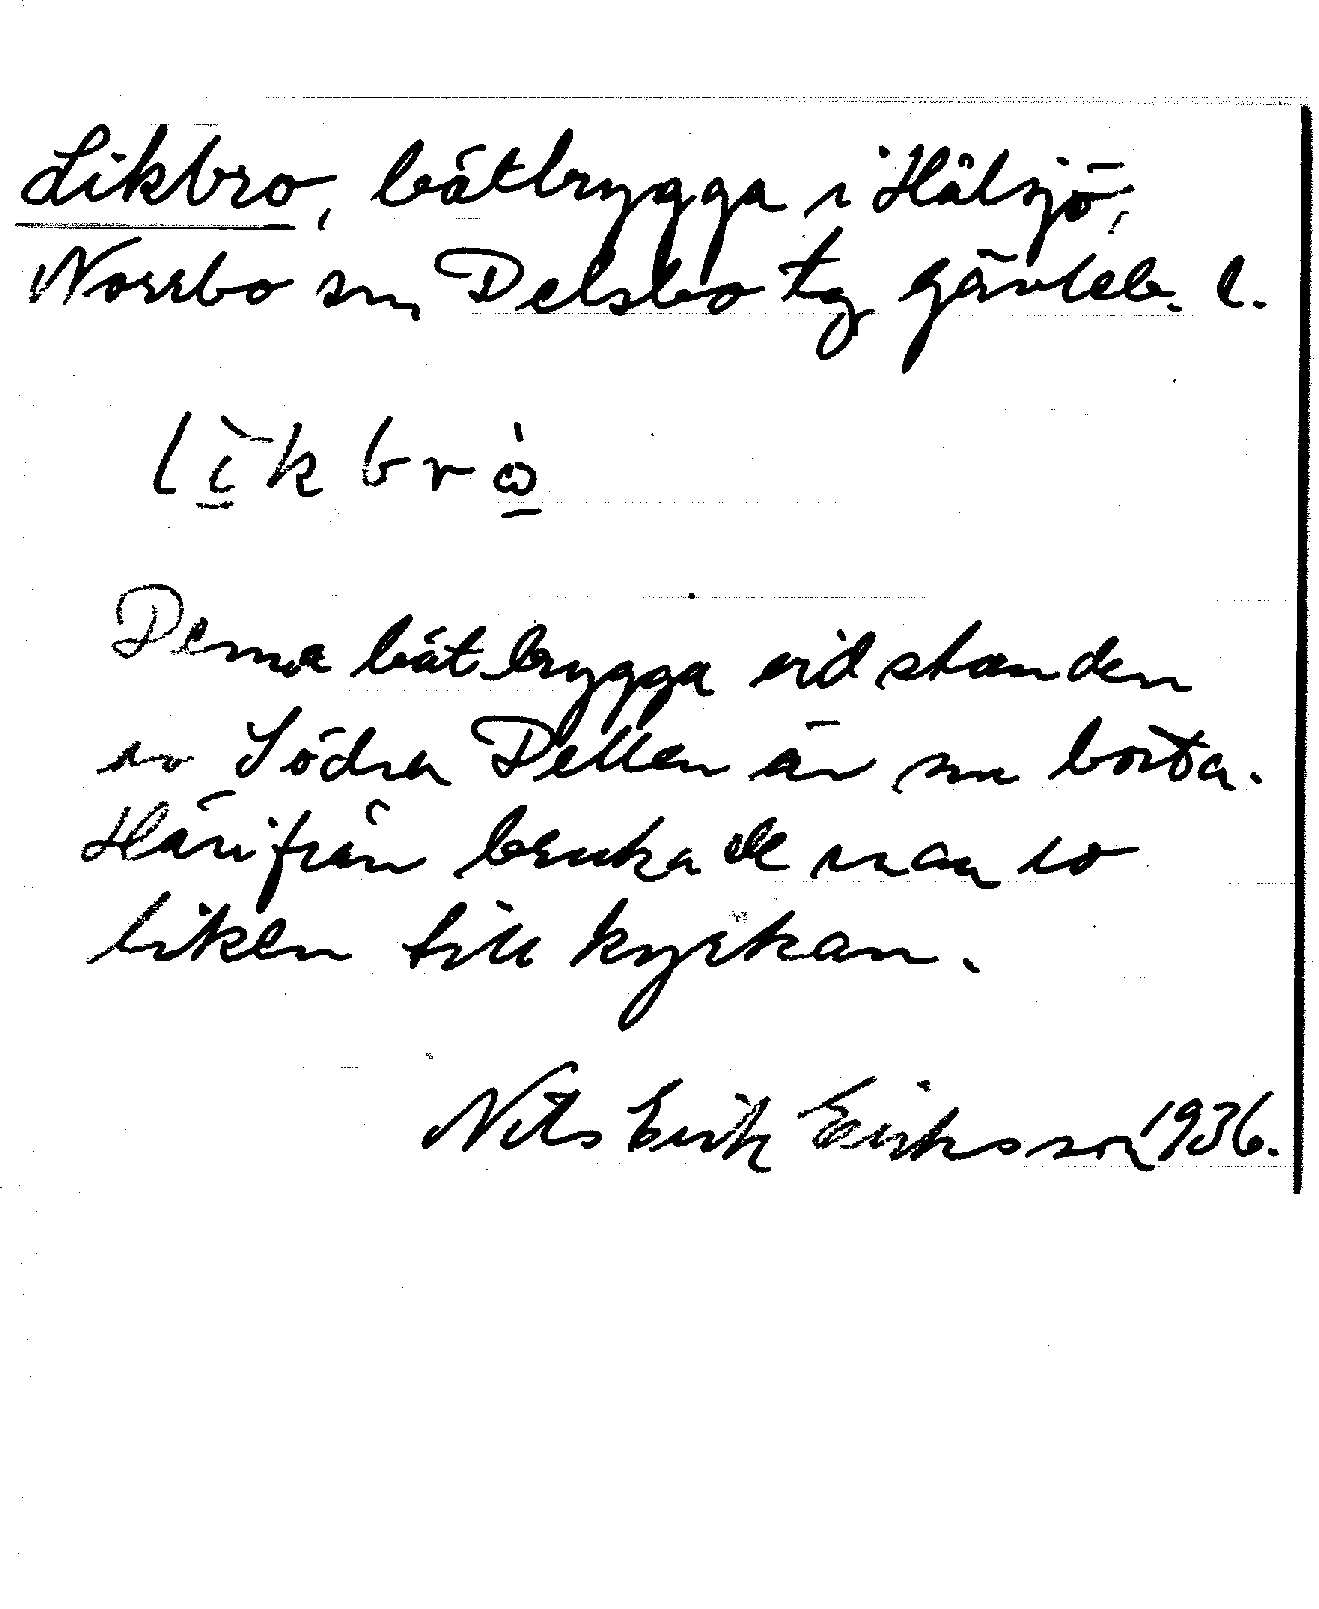 Likbro, båtbrygga i Hälsjö,
Norrbo sn, Delsbo tg Gävleb. l.
līkbrò̱
Denna båtbrygga vid stranden
av Södra Dellen är nu borta.
Härifrån brukade man ro
liken till kyrkan.
Nils Erik Eriksson 1936.